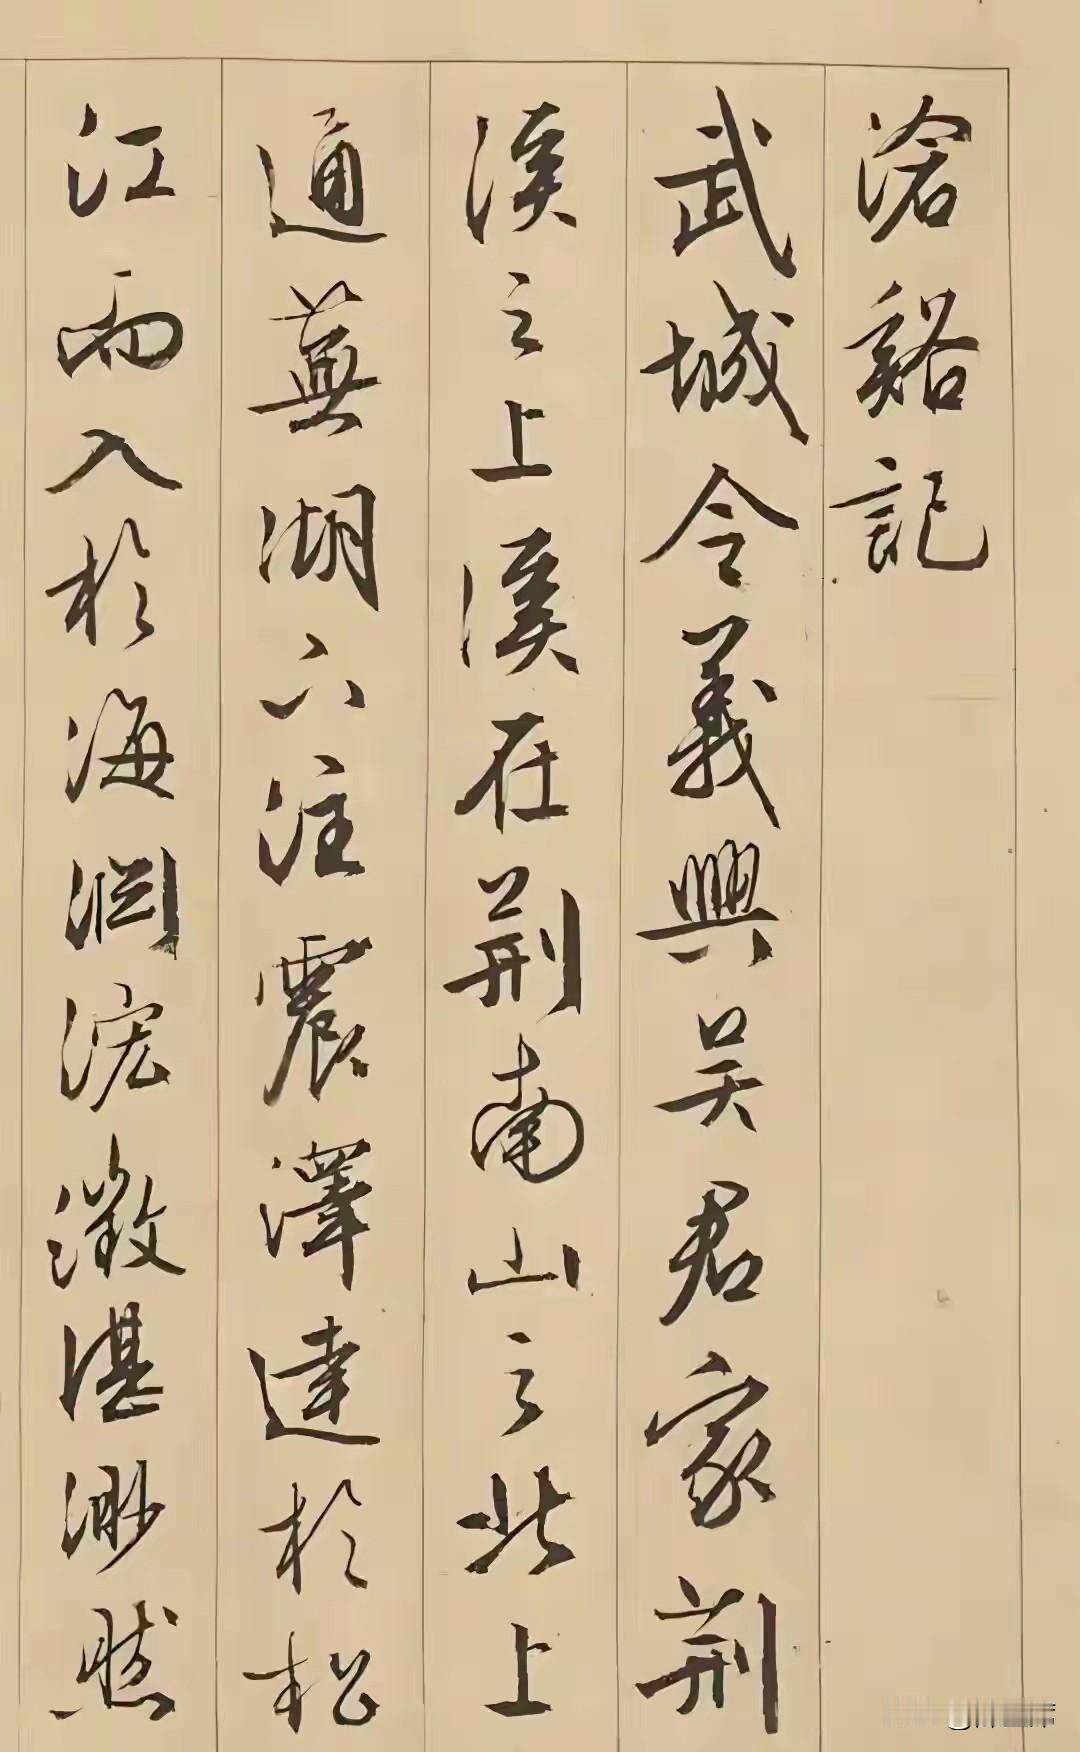 滄谿記
武城令義興吳君家荊
溪之上溪在荊南山之北上
通蕪湖下注震澤達於松
江而入於海淵浤澂湛渺然